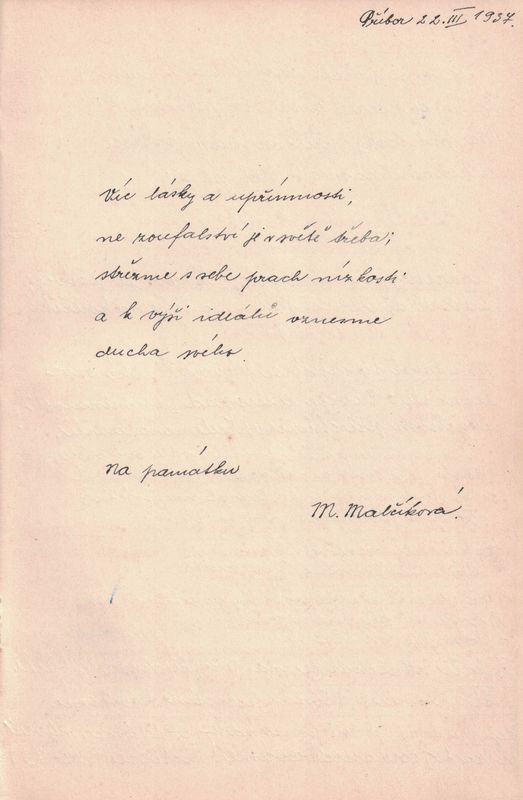 Příbor 22.III 1937.
Víc lásky a upřímnosti,
ne zoufalství je v světě třeba;
střezme s sebe prach nízkosti
a k výši ideálů vznesme
ducha svého.
Na památku
M. Malčíková.